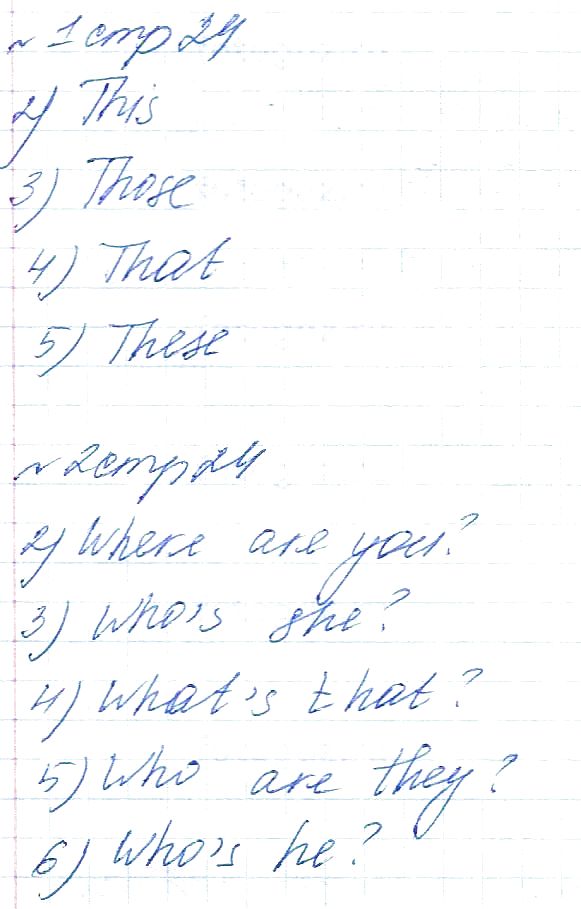 ~ 1 стр 24
2) This
3) Those
4) That
5) These
~ 2 стр 24
2) Where are you?
3) Who's she?
4) What's that?
5) Who are they?
6) Who's he?